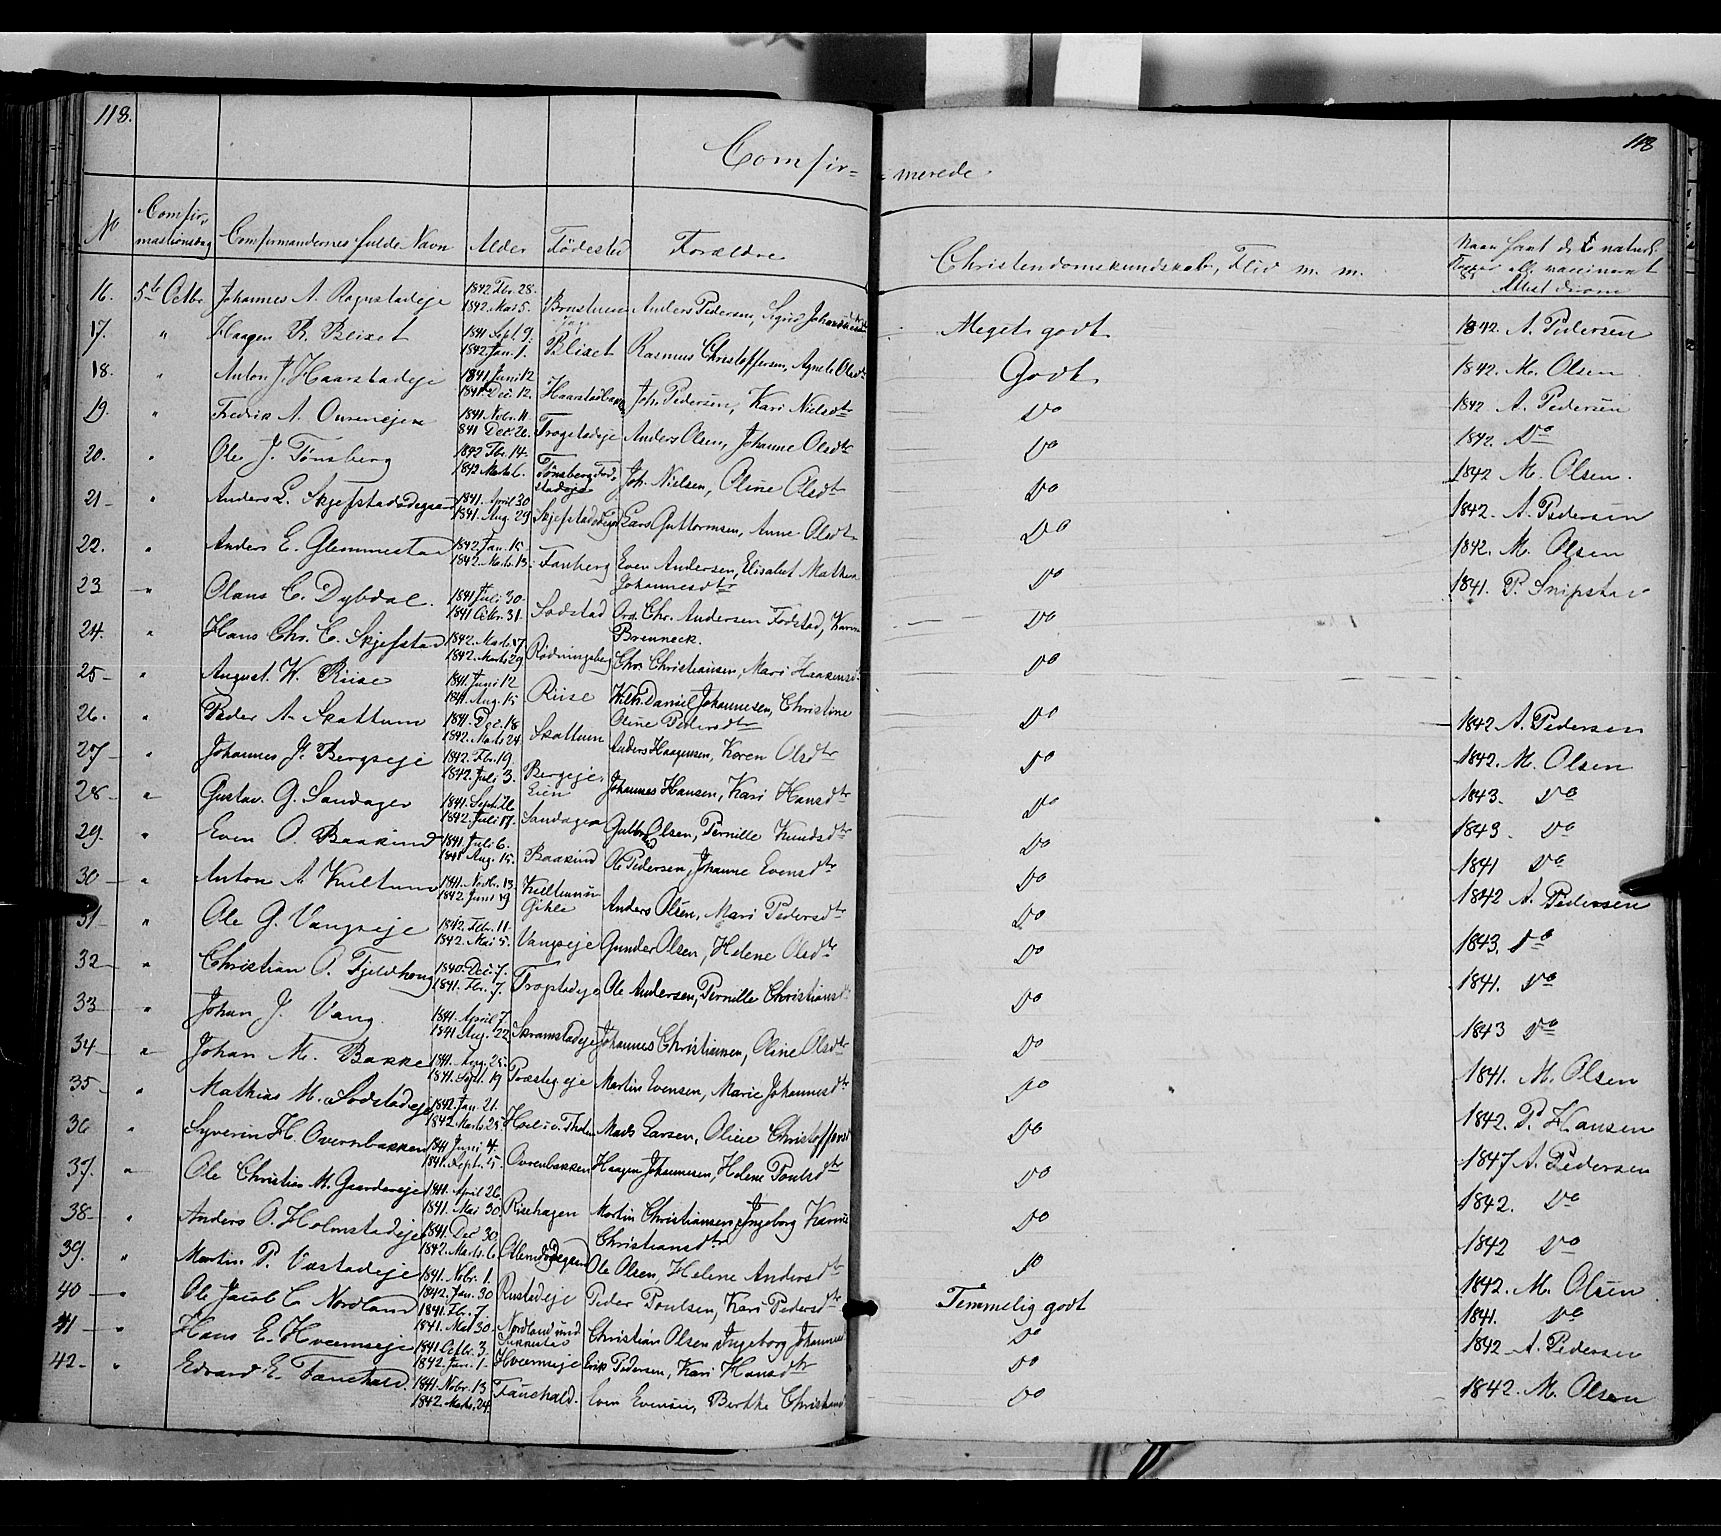 118.
118
Comfir=
=merede.
No
Comfir,
mationsdag
Comfirmandernes fulde Navn
Alder
Fødested
Forældre
Christendomskundskab, Flid m. m.
Naar havt de naturl.
Kopper ell. vaccineret
Attest derom
16. 5te Octbr. Johannes A. Rognstadeje 1842 Fbr. 28. 1842. Mai 5. Anders Pedersen, Sigrid Meget godt 1842. A. Pedersen
17. " Haagen R. Blixet 1841 Sept. 9. 1842 Jan. 1. Blixet Rasmus Christoffersen, Agnete Olsdtr Godt 1842. M. Olsen
18. " Anton J. Haarstadeje 1841 Juni 12 1841 Dec. 12. Haarstadbakk Joh. Pedersen, Kari Nielsdtr Do 1842 A. Pedersen
19. " Fredrik A. Ovreneje 1841 Nobr. 11. 841 Dec 26. Trogstadeje Anders Olsen, Johanne Olsdtr Do 1842. Do
20. " Ole J. Tønsberg 1842 Fbr. 14. 1842 Marts 6. Tønsberg Joh. Nielsen, Oline Olsdtr Do 1842 M. Olsen.
21 " Anders L. Skjefstadødegaard 1841. April 30 1841. Aug. 29 Lars Guttormsen, Anne Olsdtr Do 1842. A. Pedersen
22. " Anders E. Glemmestad 1842 Jan. 15. 1842. Marts 13. Fauberg Even Andersen, Elisabet Mathea
Johannesdtr Do 1842. M. Olsen
23 " Olaus C. Dybdal. 1841 Juli 30. 1841 Octbr. 31. Sodstad Chr. Andersen Fodstad, Karen
Brenneck. Do 1841. P. Snipstad
24. " Hans Chr. C. Skjefstad 1842. Marts 17 1842. Marts 29 Rødningsberg Chr. Christiansen, Mari Haakensd. Do
25 " August. W. Riise 1841 Juni 12 1841. Aug. 15 Riise Wilh. Daniel Johannesen, Christine
Oline Pedersdtr Do 1842 A. Pedersen
26. " Peder A. Skattum 1841. Dec. 18 1842. Marts 24 Skattum Anders Haagensen, Karen Olsdtr Do 1842. M. Olsen
27 " Johannes J. Bergseje 1842. Fbr. 19. 1842. Juli 3. Bergeje Johannes Hansen, Kari Hansdtr Do 1843. Do
28 " Gustav. G. Sandager 1841. Sept. 26. 1842. Juli 17. Sandager Gulbr. Olsen, Pernille Knudsdtr Do 1843. Do
29. " Even O. Baakind 1841 Juli 6. 1841 Aug. 15. Baakind Ole Pedersen, Johanne Evensdtr Do 1841 Do
30 " Anton A. Kultum 1841. Novbr. 13. 1842. Juni 19 Anders Olsen, Mari Pedersdtr Do 1842 A. Pedersen
31 " Ole G. Vangseje 1842. Fbr. 11. 1842. Mai 5. Vangseje Gunder Olsen, Helene Olsdtr Do 1843. Do
32 " Christian O. Fjeldhoug 1840. Dec. 7. 1841. Fbr. 7. Trogstadeje Ole Andersen, Pernille Christiansd. Do 1841. Do
33 " Johan J. Vang. 1841. April 7. 1841 Aug. 22 Skramstadeje Johannes Christiansen, Oline Olsdtr Do 1843 Do
34 " Johan M. Bakke 1841. Aug. 25. 1841. Sept. 19 Præsteg. eje Martin Evensen, Marie Johannesdtr Do 1841. M. Olsen
35 " Mathias M. Sodstadeje 1842. Jan. 21. 1842. Marts 25. Mads Larsen, Oline Christoffersd. Do 1842. P. Hansen
36 " Syverin H. Overnbakken 1841 Juni 4. 1841. Sept. 5. Ovrenbakken Haagen Johannesen, Helene Poulsdtr Do 1847 A. Pedersen
37. " Ole Christian M. Gaardereje 1841. April 26. 1841. Mai 30. Risehagen Martin Christiansen, Ingeborg Karine
Christiansdtr Do 1842. Do
38 " Anders O. Holmstadeje 1841. Dec 30 1842. Marts 6. Ole Olsen, Helene Andersdtr Do 1842 Do
39. " Martin. P. Vestadeje 1841. Nobr. 1. 1842. Jan. 30 Rustadeje Peder Poulsen, Kari Pedersdtr Temmelig godt 1842. M. Olsen
40 " Ole Jacob C. Nordland 1841. Fbr. 7 1841. Mai 30. Nordland und Christian Olsen Ingeborg Johannesd Do 1841. Do
41 " Hans E. Hvemseje 1841 Octbr. 3. 1842. Jan. 1. Hvemseje Erik Pedersen, Kari Hansdtr Do 1842 A. Pedersen
42. " Edvard E. Fauchald. 1841. Nobr. 13 1842. Marts. 24. Fauchald. Even Evensen, Berthe Christiansd Do 1842. M. Olsen